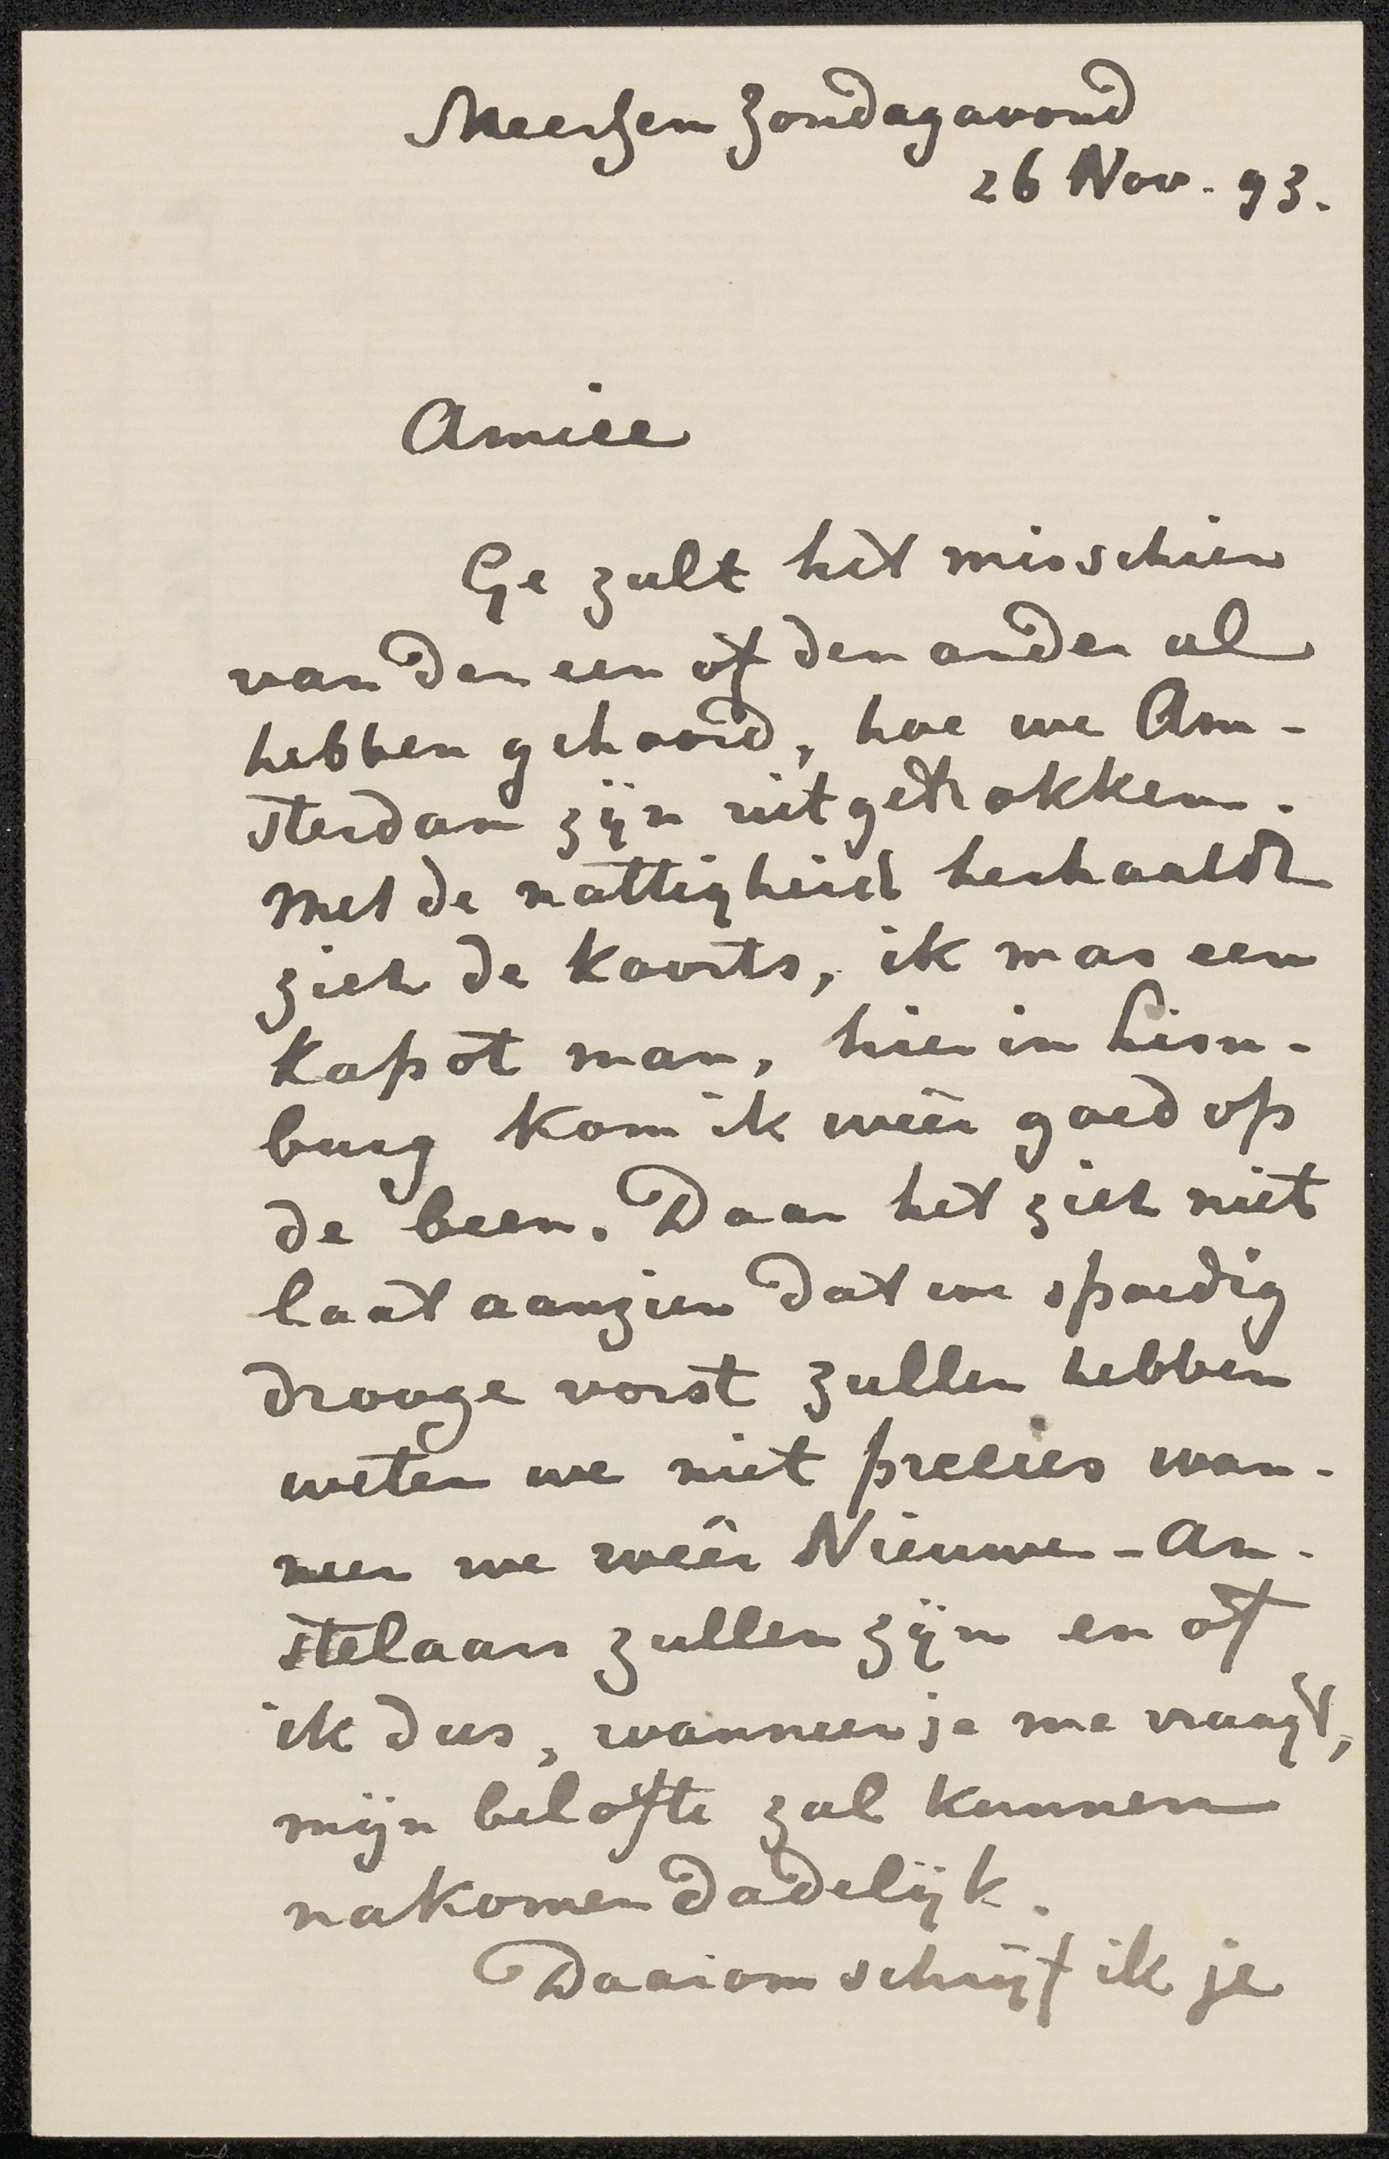 Meerssen Zondagavond
26 Nov. 93.
Amice
Ge zult het misschien
van den een of den ander al
hebben gehoord, hoe we Am-
sterdam zijn uitgetrokken.
Met de nattigheid herhaalde
zich de koorts, ik was een
kapot man, hier in Lim-
burg kom ik weêr goed op
de been. Daar het zich niet
laat aanzien dat we spoedig
drooge vorst zullen hebben
weten we niet precies wan-
neer we weêr Nieuwe-Am-
stelaars zullen zijn en of
ik dus, wanneer je me vraagt,
mijn belofte zal kunnen
nakomen dadelijk.
Daarom schrijf ik je